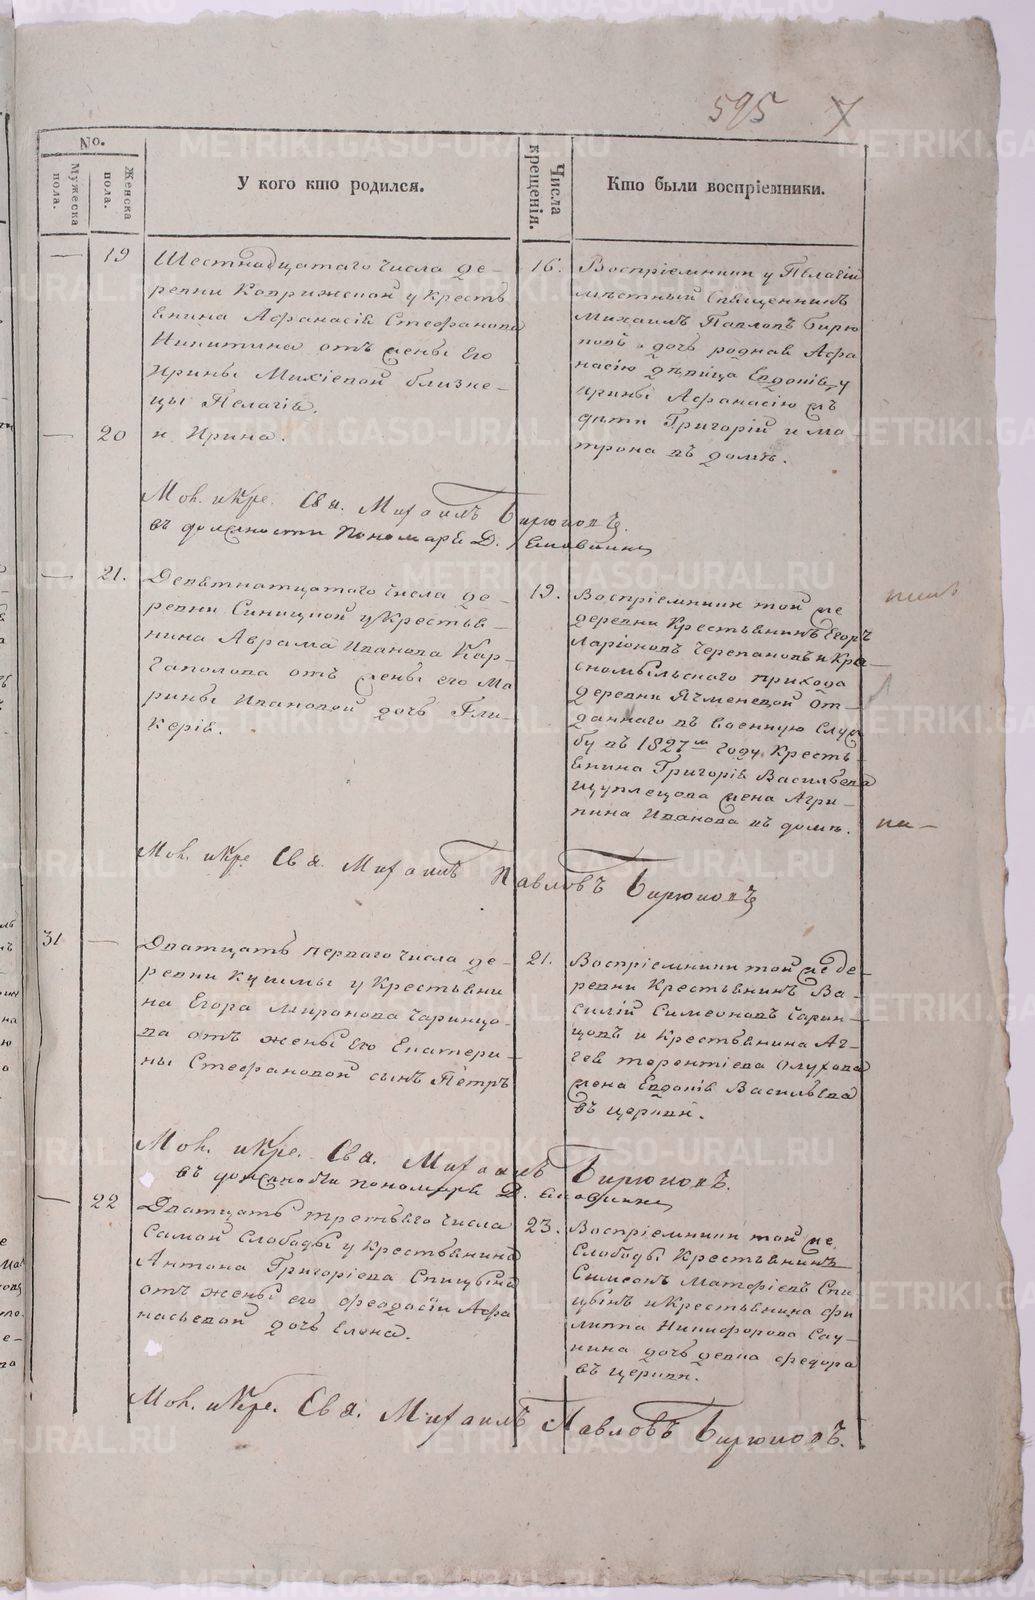 595 7
No.
Мужеска пола.
Женска пола.
У кого кто родился.
Числа крещенія.
Кто были воспріемники.
— 19
Шестнадцатаго числа де-
ревни у кресть
янина Афанасія Стефанова
Никитина отъ жены его
Ирины Михіевой близне-
цы Пелагія.
— 20 и Ирина.
16.
Воспріемники у Пелагіи
мѣстный Священникъ
Михаилъ Павловъ Бирю
ковъ и дочь родная Афа
насію дѣвица Евдокія, у
Ирины Афанасію жъ
дѣти Григорій и Ма
трона въ домѣ.
Мол. и Кре. Свя. Михаилъ Бирюковъ.
въ должности Пономаря Д.
— 21.
Девятнатцатаго числа де-
ревни Синицкой у Крестья-
нина Аврама Иванова Кар-
гаполова отъ жены его Ма
рины Ивановой дочь Гли-
керія.
19.
Воспріемники той же
деревни Крестьянинъ Егоръ
Ларіоновъ Черепановъ и Кра
сномыльскаго прихода
деревни Ячменевой От-
даннаго въ военную служ
бу въ 1827м году Кресть-
янина Григорія Васильева
Щуплецова жена Агри-
пина Иванова въ домѣ.
Мол. и Кре. Свя. Михаилъ Павловъ Бирюковъ
31 —
Дватцать перваго числа де-
ревни Кушмы у Крестьяни
на Егора Миронова Чаринцо-
ва отъ жены его Екатери-
ны Стефановой сынъ Петръ
21.
Воспріемники той же де-
ревни Крестьянинъ Ва-
силій Симеоновъ Чарин-
цовъ и Крестьянина Аг-
гея Терентіева Олухова
жена Евдокія Васильева
въ церкви.
Мол. и Кре. Свя. Михаилъ Бирюковъ.
въ должности пономаря Д.
— 22
Дватцать третьяго числа
Самой Слободы у Крестьянина
Антона Григоріева Спицынъ
отъ жены его Феодосіи Афа
насьевой дочь Елена.
23.
Воспріемники той же
Слободы Крестьянинъ
Симеонъ Матфіевъ Спи
цынъ и Крестьянина Фи
липпа Никифорова Сау-
нина дочь девка Федора
въ церкви.
Мол. и Кре. Свя. Михаилъ Павловъ Бирюковъ.
METRIKI.GASO-URAL.RU